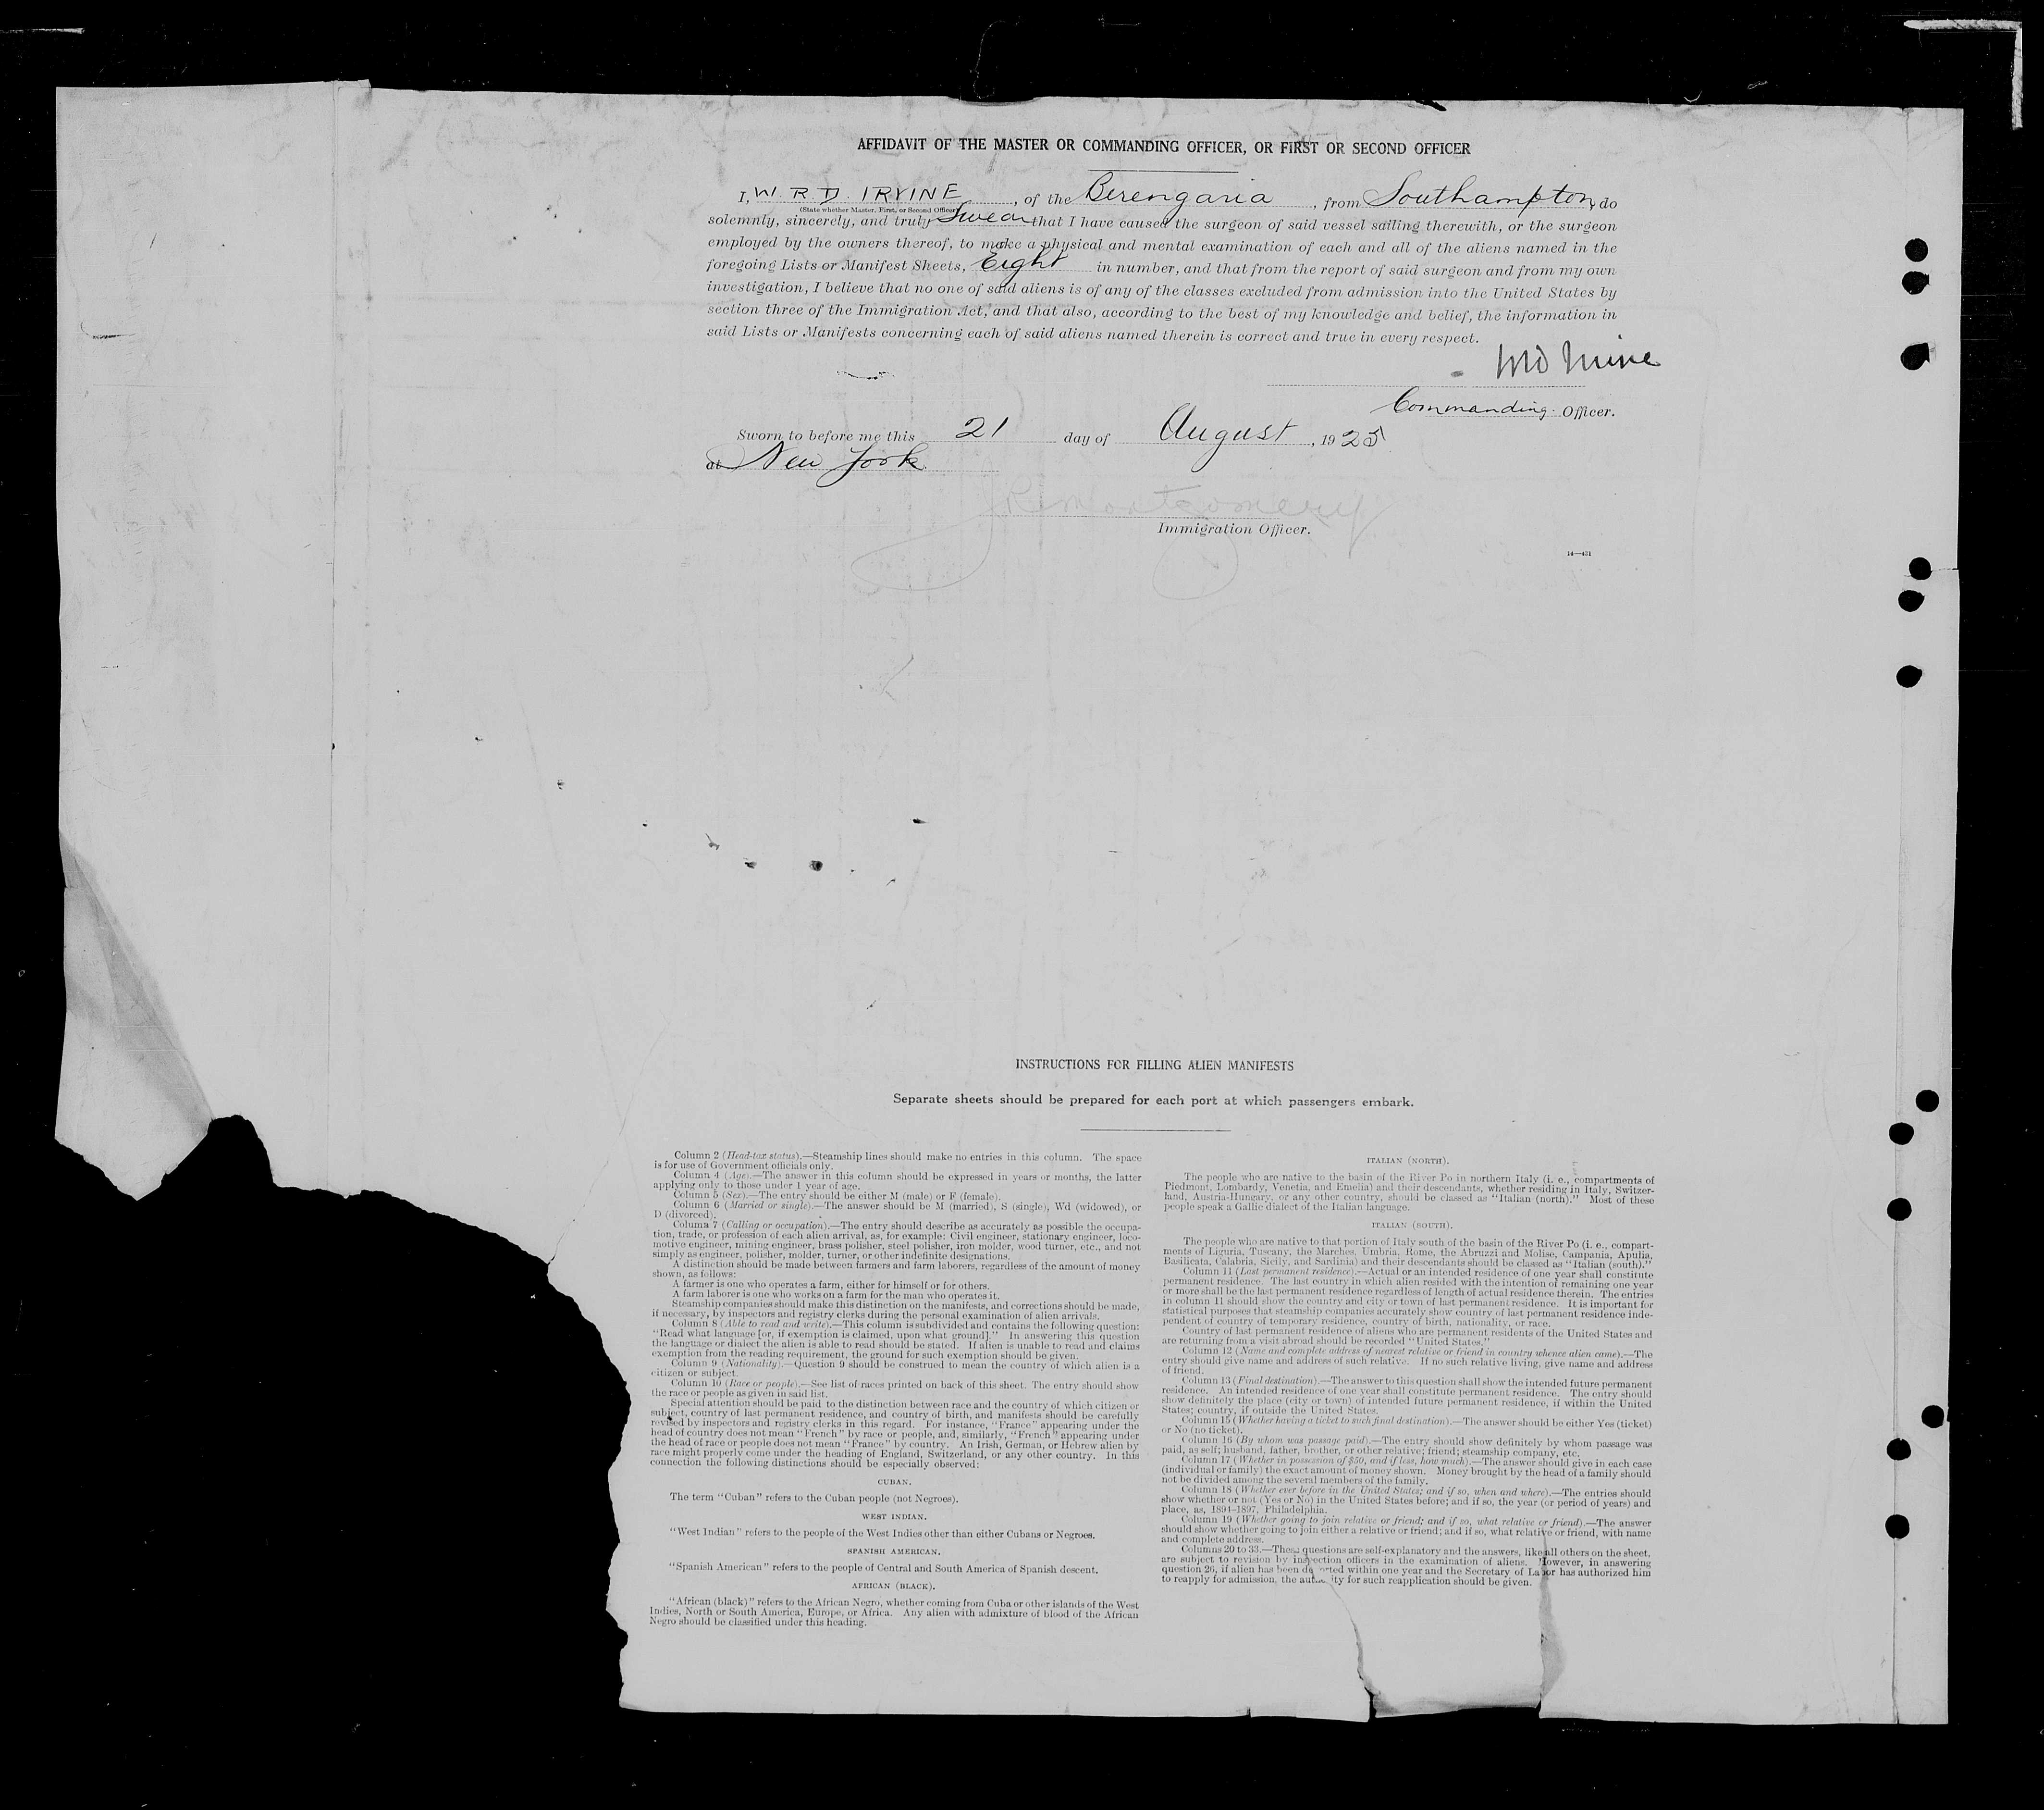 AFFIDAVIT OF THE MASTER OR COMMANDING OFFICER, OR FIRST OR SECOND OFFICER
I, W R D IRVINE, of the Berengaria, from Southampton, do
(State whether Master, First, or Second Officer)
solemnly, sincerely, and truly Swear that I have caused the surgeon of said vessel sailing therewith, or the surgeon
employed by the owners thereof, to make a physical and mental examination of each and all of the aliens named in the
foregoing Lists or Manifest Sheets, Eight in number, and that from the report of said surgeon and from my own
investigation, I believe that no one of said aliens is of any of the classes excluded from admission into the United States by
section three of the Immigration Act, and that also, according to the best of my knowledge and belief, the information in
said Lists or Manifests concerning each of said aliens named therein is correct and true in every respect.
Commanding Officer.
Sworn to before me this 21 day of August, 1925
at New York
Montgomery
Immigration Officer.
14—431
INSTRUCTIONS FOR FILLING ALIEN MANIFESTS
Separate sheets should be prepared for each port at which passengers embark.
Column 2 (Head-tax status).—Steamship lines should make no entries in this column. The space
is for use of Government officials only.
Column 4 (Age).—The answer in this column should be expressed in years or months, the latter
applying only to those under 1 year of age.
Column 5 (Sex).—The entry should be either M (male) or F (female).
Column 6 (Married or single).—The answer should be M (married), S (single), Wd (widowed), or
D (divorced).
Column 7 (Calling or occupation).—The entry should describe as accurately as possible the occupa-
tion, trade, or profession of each alien arrival, as, for example: Civil engineer, stationary engineer, loco-
motive engineer, mining engineer, brass polisher, steel polisher, iron molder, wood turner, etc., and not
simply as engineer, polisher, molder, turner, or other indefinite designations.
A distinction should be made between farmers and farm laborers, regardless of the amount of money
shown, as follows:
A farmer is one who operates a farm, either for himself or for others.
A farm laborer is one who works on a farm for the man who operates it.
Steamship companies should make this distinction on the manifests, and corrections should be made,
if necessary, by inspectors and registry clerks during the personal examination of alien arrivals.
Column 8 (Able to read and write).—This column is subdivided and contains the following question:
"Read what language [or, if exemption is claimed, upon what ground]." In answering this question
the language or dialect the alien is able to read should be stated. If alien is unable to read and claims
exemption from the reading requirement, the ground for such exemption should be given.
Column 9 (Nationality).—Question 9 should be construed to mean the country of which alien is a
citizen or subject.
Column 10 (Race or people).—See list of races printed on back of this sheet. The entry should show
the race or people as given in said list.
Special attention should be paid to the distinction between race and the country of which citizen or
subject, country of last permanent residence, and country of birth, and manifests should be carefully
revised by inspectors and registry clerks in this regard. For instance, "France" appearing under the
head of country does not mean "French" by race or people, and, similarly, "French" appearing under
the head of race or people does not mean "France" by country. An Irish, German, or Hebrew alien by
race might properly come under the heading of England, Switzerland, or any other country. In this
connection the following distinctions should be especially observed:
CUBAN.
The term "Cuban" refers to the Cuban people (not Negroes).
WEST INDIAN.
"West Indian" refers to the people of the West Indies other than either Cubans or Negroes.
SPANISH AMERICAN.
"Spanish American" refers to the people of Central and South America of Spanish descent.
AFRICAN (BLACK).
"African (black)" refers to the African Negro, whether coming from Cuba or other islands of the West
Indies, North or South America, Europe, or Africa. Any alien with admixture of blood of the African
Negro should be classified under this heading.
ITALIAN (NORTH).
The people who are native to the basin of the River Po in northern Italy (i. e., compartments of
Piedmont, Lombardy, Venetia, and Emelia) and their descendants, whether residing in Italy, Switzer-
land, Austria-Hungary, or any other country, should be classed as "Italian (north)." Most of these
people speak a Gallic dialect of the Italian language.
ITALIAN (SOUTH).
The people who are native to that portion of Italy south of the basin of the River Po (i. e., compart-
ments of Liguria, Tuscany, the Marches, Umbria, Rome, the Abruzzi and Molise, Campania, Apulia,
Basilicata, Calabria, Sicily, and Sardinia) and their descendants should be classed as "Italian (south)."
Column 11 (Last permanent residence).—Actual or an intended residence of one year shall constitute
permanent residence. The last country in which alien resided with the intention of remaining one year
or more shall be the last permanent residence regardless of length of actual residence therein. The entries
in column 11 should show the country and city or town of last permanent residence. It is important for
statistical purposes that steamship companies accurately show country of last permanent residence inde-
pendent of country of temporary residence, country of birth, nationality, or race.
Country of last permanent residence of aliens who are permanent residents of the United States and
are returning from a visit abroad should be recorded "United States."
Column 12 (Name and complete address of nearest relative or friend in country whence alien came).—The
entry should give name and address of such relative. If no such relative living, give name and address
of friend.
Column 13 (Final destination).—The answer to this question shall show the intended future permanent
residence. An intended residence of one year shall constitute permanent residence. The entry should
show definitely the place (city or town) of intended future permanent residence, if within the United
States; country, if outside the United States.
Column 15 (Whether having a ticket to such final destination).—The answer should be either Yes (ticket)
or No (no ticket).
Column 16 (By whom was passage paid).—The entry should show definitely by whom passage was
paid, as self; husband, father, brother, or other relative; friend; steamship company, etc.
Column 17 (Whether in possession of $50, and if less, how much).—The answer should give in each case
(individual or family) the exact amount of money shown. Money brought by the head of a family should
not be divided among the several members of the family.
Column 18 (Whether ever before in the United States; and if so, when and where).—The entries should
show whether or not (Yes or No) in the United States before; and if so, the year (or period of years) and
place, as, 1894-1897, Philadelphia.
Column 19 (Whether going to join relative or friend; and if so, what relative or friend).—The answer
should show whether going to join either a relative or friend; and if so, what relative or friend, with name
and complete address.
Columns 20 to 33.—These questions are self-explanatory and the answers, like all others on the sheet,
are subject to revision by inspection officers in the examination of aliens. However, in answering
question 26, if alien has been deported within one year and the Secretary of Labor has authorized him
to reapply for admission, the authority for such reapplication should be given.